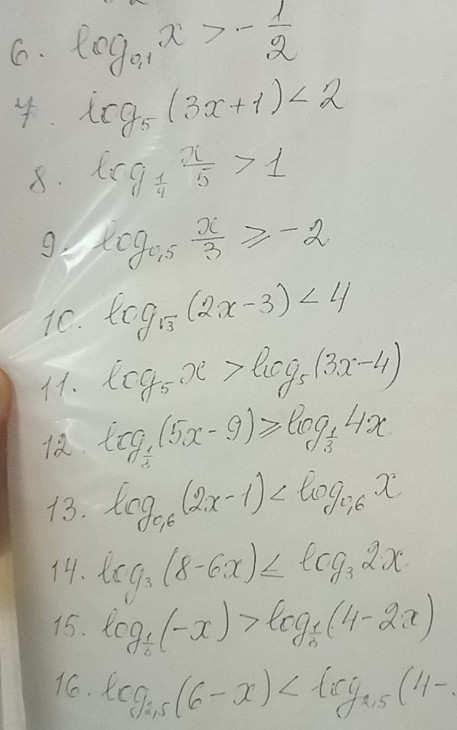 6. log₀,₁ x > -1/2
7. log₅ (3x+1) < 2
8. log_{1/4} x/5 > 1
9. log₀,₅ x/3 ⩾ -2
10. log_{√3} (2x-3) < 4
11. log₅ x > log₅ (3x-4)
12. log_{1/3} (5x-9) ⩾ log_{1/3} 4x
13. log₀,₆ (2x-1) < log₀,₆ x
14. log₃ (8-6x) ≤ log₃ 2x.
15. log_{1/6} (-x) > log_{1/6} (4-2x)
16. log₂,₅ (6-x) < log₂,₅ (4-